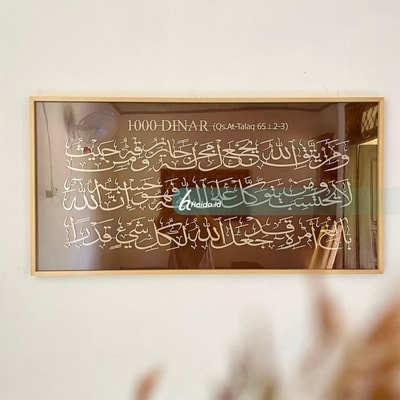 1000 DINAR (Qs.At-Talaq 65 : 2-3)
ومن يتق الله يجعل له مخرجا ويرزقه من حيث
لا يحتسب ومن يتوكل على الله فهو حسبه إن الله
Haida.id
بالغ أمره قد جعل الله لكل شيء قدرا